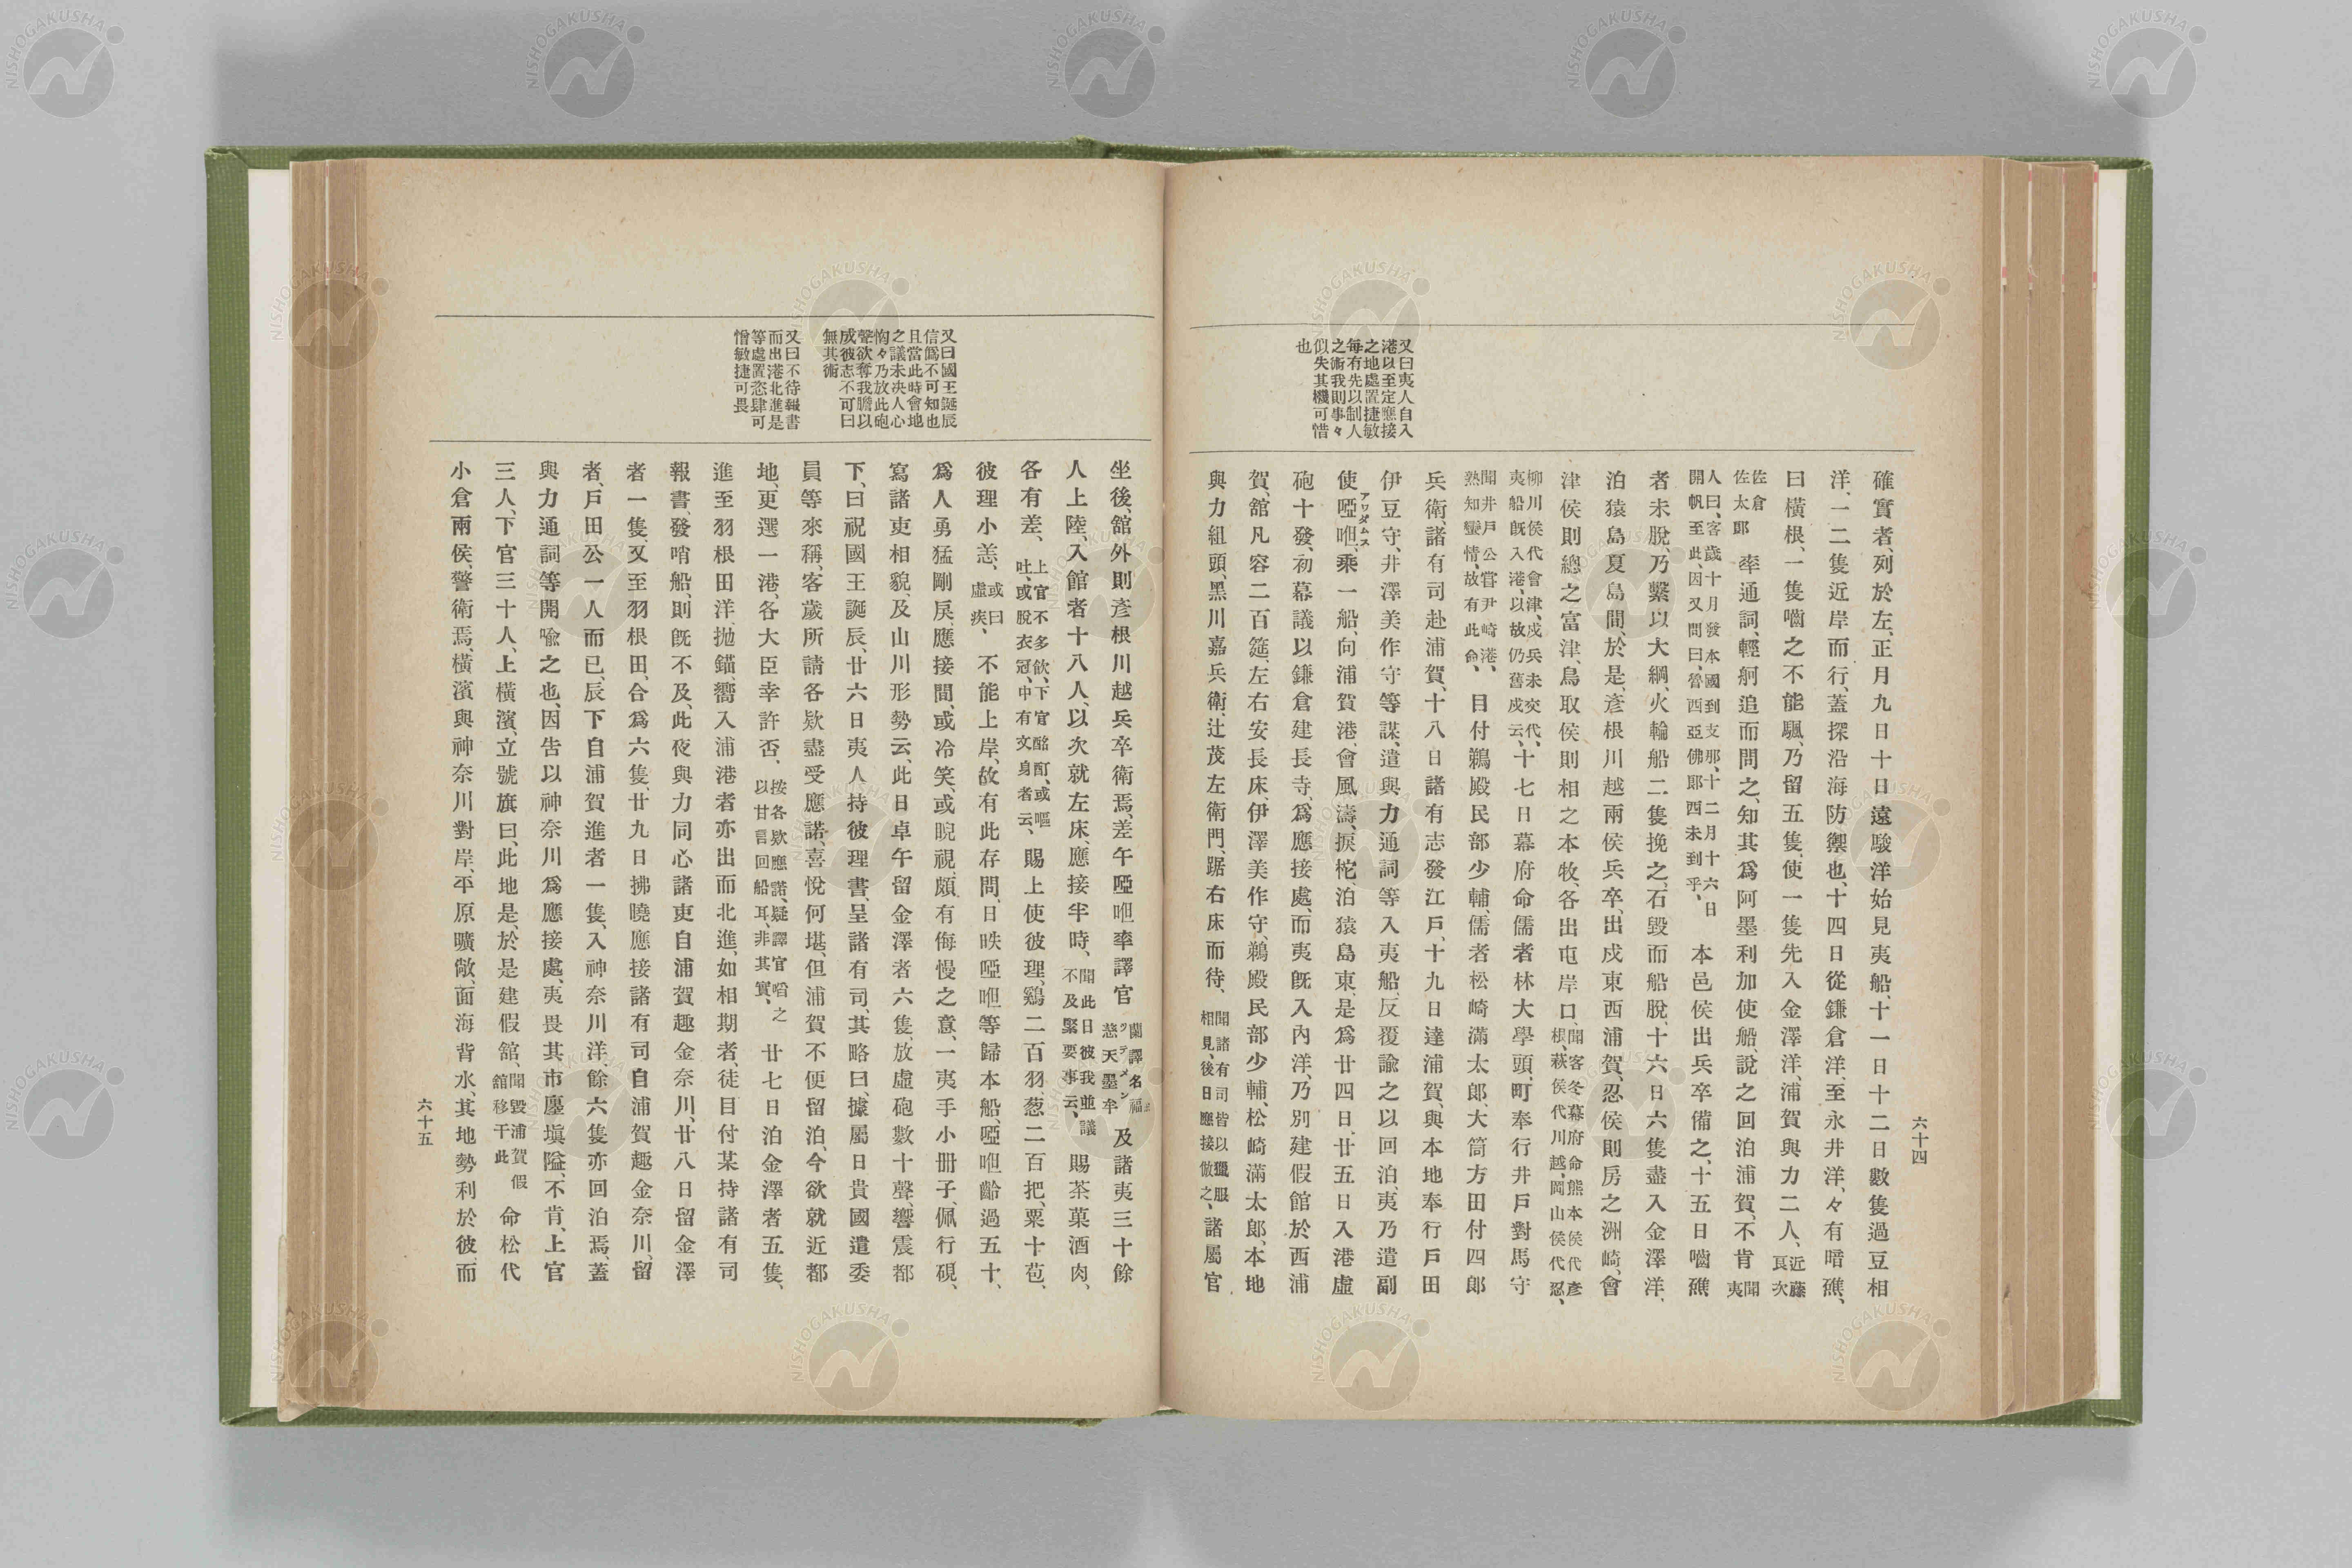 又曰夷人自入
港以至定應接
之地處置捷敏
每有先以制人
之術我則事々
似失其機可惜
也
確實者、列於左、正月九日十日遠駿洋始見夷船、十一日十二日數隻過豆相
洋、一二隻近岸而行、蓋探沿海防禦也、十四日從鎌倉洋、至永井洋、々有暗礁、
曰橫根、一隻嚙之不能颿、乃留五隻、使一隻先入金澤洋、浦賀與力二人、近藤
良次
佐倉
佐太郎
率通詞、輕舸追而問之、知其爲阿墨利加使船、說之回泊浦賀、不肯聞
夷
人曰、客歲十月發本國到支那、十二月十六日
開帆至此、因又問曰、魯西亞佛郞西未到乎、
本邑侯出兵卒備之、十五日嚙礁
者未脫、乃繫以大綱、火輪船二隻挽之、石毀而船脫、十六日六隻盡入金澤洋、
泊猿島夏島間、於是、彥根川越兩侯兵卒、出戍東西浦賀、忍侯則房之洲崎、會
津侯則總之富津、鳥取侯則相之本牧、各出屯岸口、聞客冬幕府命熊本侯代彥
根、萩侯代川越、岡山侯代忍、
柳川侯代會津、戍兵未交代、
夷船旣入港、以故仍舊戍云、
十七日幕府命儒者林大學頭、町奉行井戶對馬守
聞井戶公嘗尹崎港、
熟知蠻情、故有此命、
目付鵜殿民部少輔、儒者松崎滿太郞、大筒方田付四郞
兵衛、諸有司赴浦賀、十八日諸有志發江戶、十九日達浦賀、與本地奉行戶田
伊豆守、井澤美作守等謀、遣與力通詞等入夷船、反覆諭之以回泊、夷乃遣副
使啞㖀、アワダムス乘一船、向浦賀港、會風濤、捩柁、泊猿島東、是爲廿四日、廿五日入港虛
砲十發、初幕議以鎌倉建長寺、爲應接處、而夷旣入內洋、乃別建假館於西浦
賀、舘凡容二百筵、左右安長床、伊澤美作守、鵜殿民部少輔、松崎滿太郞、本地
與力組頭、黑川嘉兵衛、辻茂左衛門、踞右床而待、聞諸有司皆以獵服
相見、後日應接倣之、
諸屬官
六十四
又曰國王誕辰
信僞不可知也
且當此時會地
之議未決人心
恟々乃放此砲
聲欲奪我膽以
成彼志不可曰
無其術
又曰不待報書
而出港北進是
等處置恣肆可
憎敏捷可畏
坐後、舘外則彥根川越兵卒衛焉、差午啞㖀率譯官蘭譯名福
慈天墨牟
クテメン
及諸夷三十餘
人上陸、入館者十八人、以次就左床、應接半時、聞此日彼我並議
不及緊要事云、
賜茶菓酒肉、
各有差、上官不多飮、下官酩酊、或嘔
吐、或脫衣冠、中有文身者云、
賜上使彼理、鷄二百羽葱二百把、粟十苞、
彼理小恙、或曰
虛疾、
不能上岸、故有此存問、日昳啞㖀等歸本船、啞㖀齡過五十、
爲人勇猛剛戾、應接間、或冷笑、或睨視、頗有侮慢之意、一夷手小冊子、佩行硯、
寫諸吏相貌、及山川形勢云、此日卓午留金澤者六隻、放虛砲數十聲、響震都
下、曰祝國王誕辰、廿六日夷人持彼理書、呈諸有司、其略曰、據屬日貴國遣委
員等來稱、客歲所請各欵盡受應諾、喜悅何堪、但浦賀不便留泊、今欲就近都
地、更選一港、各大臣幸許否、按各欵應諾、疑譯官啗之
以甘言回船耳、非其實、
廿七日泊金澤者五隻、
進至羽根田洋、抛錨、嚮入浦港者亦出而北進、如相期者、徒目付某持諸有司
報書、發哨船、則旣不及、此夜與力同心諸吏自浦賀趣金奈川、廿八日留金澤
者一隻、又至羽根田、合爲六隻、廿九日拂曉應接諸有司自浦賀趣金奈川、留
者、戶田公一人而已、辰下自浦賀進者一隻、入神奈川洋、餘六隻亦回泊焉、蓋
與力通詞等開喩之也、因告以神奈川爲應接處、夷畏其市廛塡隘、不肯、上官
三人、下官三十人、上橫濱、立號旗曰、此地是、於是建假舘、聞毀浦賀假
舘移于此
命松代
小倉兩侯、警衛焉、橫濱與神奈川對岸、平原曠敞、面海背水、其地勢利於彼、而
六十五